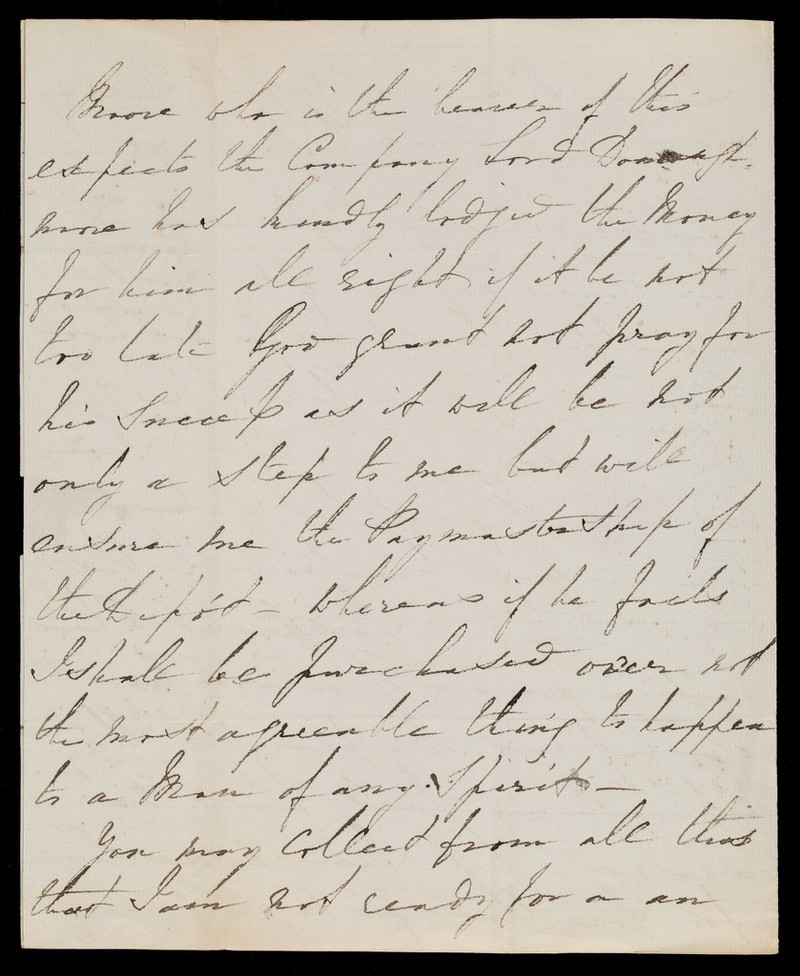 Moore who is the bearer of this
expects the Company Lord Donough-
more has kindly lodged the Money
for him all right if it be not
too late God grant not pray for
his Success as it will be not
only a step to me but will
ensure me the Paymastership of
the Depôt – whereas if he fails
I shall be purchased over not
the most agreeable thing to happen
to a Man of any Spirit –
You may Collect from all this
that I am not ready for a an